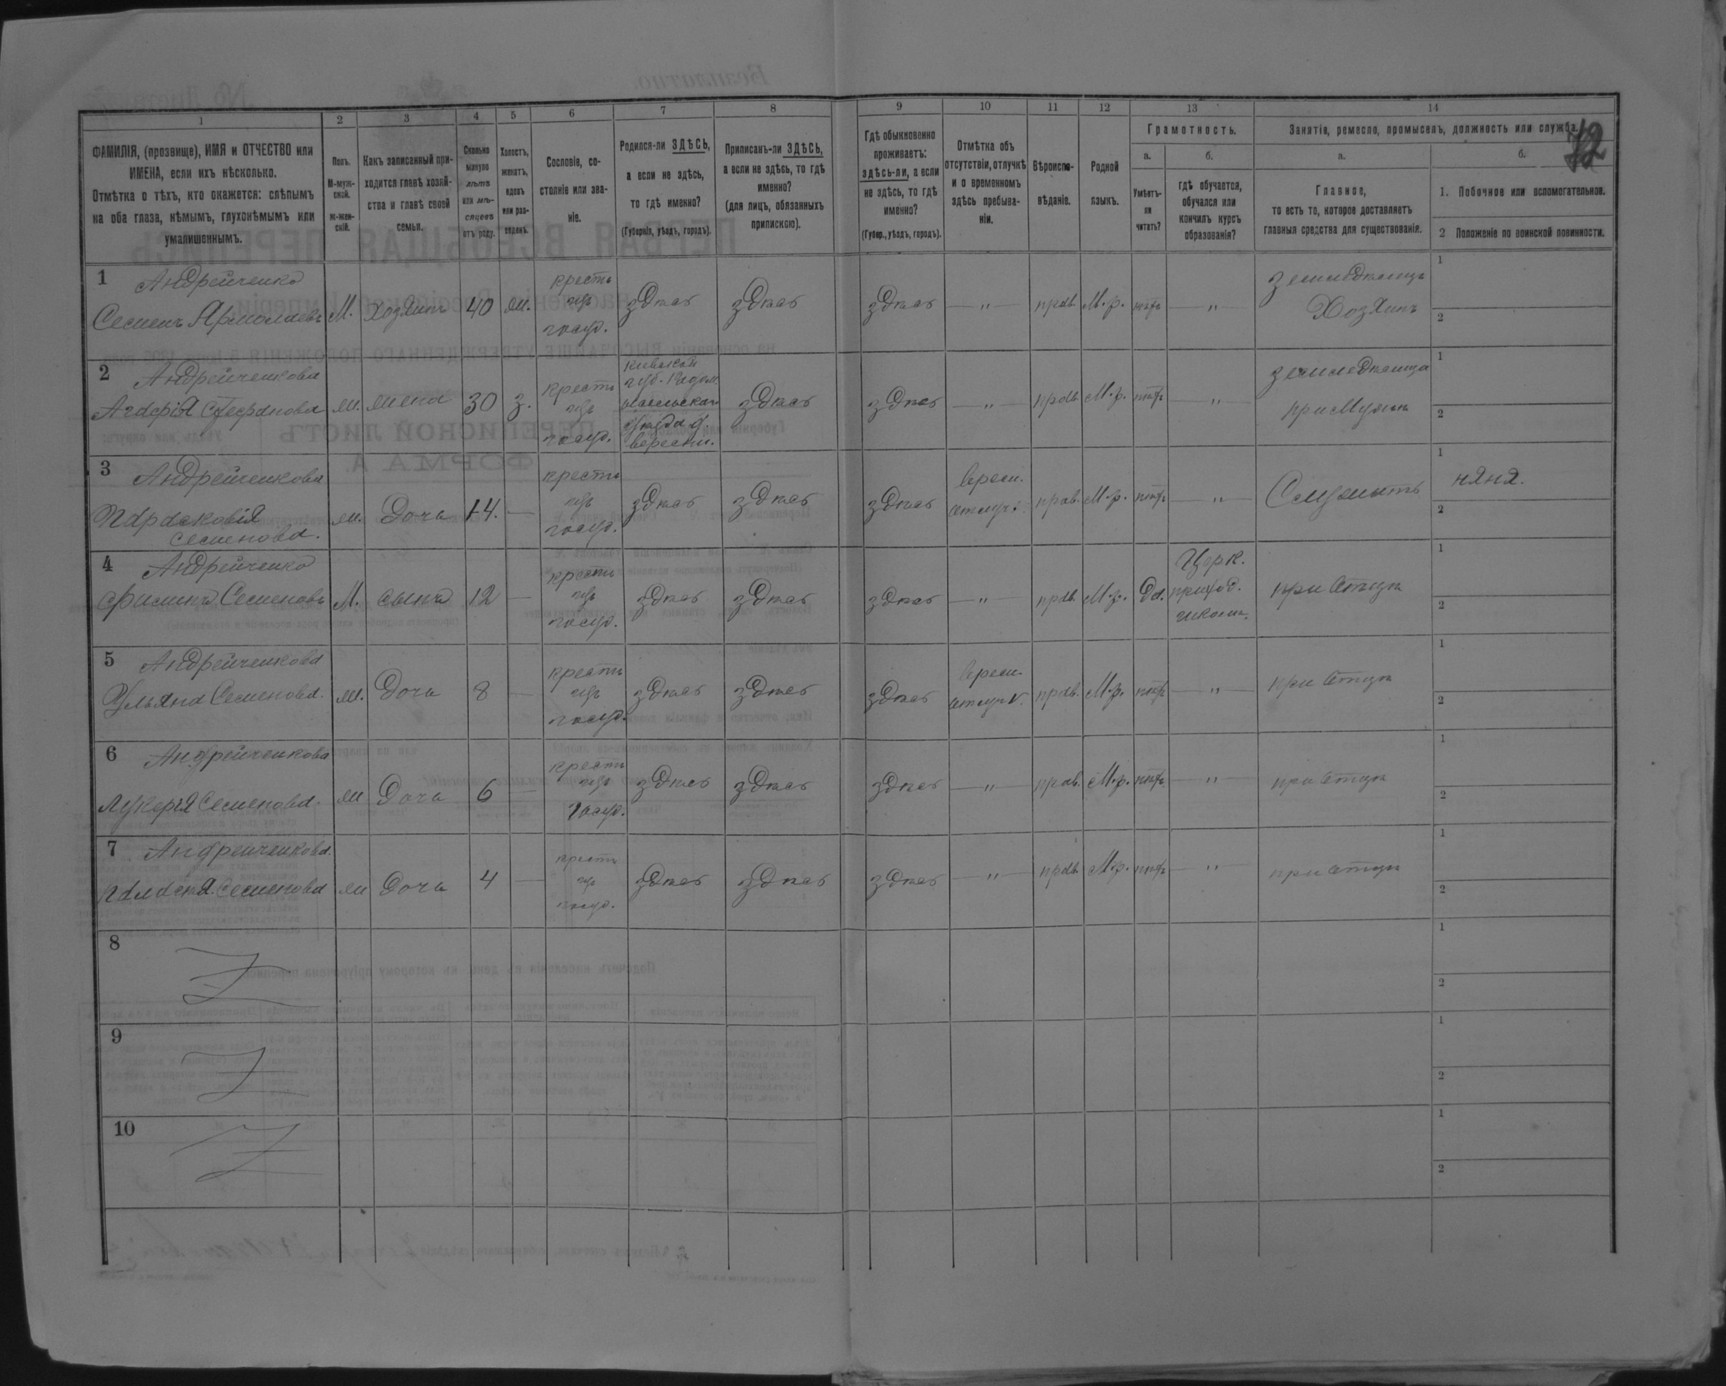 72
1
2
3
4
5
6
7
8
9
10
11
12
13
14
ФАМИЛІЯ, (прозвище), ИМЯ и ОТЧЕСТВО или
ИМЕНА, если ихъ нѣсколько.
Отмѣтка о тѣхъ, кто окажется: слѣпымъ
на оба глаза, нѣмымъ, глухонѣмымъ или
умалишеннымъ.
Полъ.
М-муж-
ской.
ж-жен-
скій.
Какъ записанный при-
ходится главѣ хозяй-
ства и главѣ своей
семьи.
Сколько
минуло
лѣтъ
или мѣ-
сяцевъ
отъ роду.
Холостъ,
женатъ,
вдовъ
или раз-
веденъ.
Сословіе, со-
стояніе или зва-
ніе.
Родился-ли ЗДѢСЬ,
а если не здѣсь,
то гдѣ именно?
(Губернія, уѣздъ, городъ).
Приписанъ-ли ЗДѢСЬ,
а если не здѣсь, то гдѣ
именно?
(для лицъ, обязанныхъ
припискою).
Гдѣ обыкновенно
проживаетъ:
здѣсь-ли, а если
не здѣсь, то гдѣ
именно?
(Губер., уѣздъ, городъ).
Отмѣтка объ
отсутствіи, отлучкѣ
и о временномъ
здѣсь пребыва-
ніи.
Вѣроиспо-
вѣданіе.
Родной
языкъ.
Грамотность.
а.
б.
Умѣетъ-
ли
читать?
гдѣ обучается,
обучался или
кончилъ курсъ
образованія?
Занятіе, ремесло, промыселъ, должность или служба.
а.
б.
Главное,
то есть то, которое доставляетъ
главныя средства для существованія.
1. Побочное или вспомогательное.
2 Положеніе по воинской повинности.
1 Андрейченко
Семенъ Ярмолаевъ М. Хозяинъ 40 ж. кресть изъ госуд. здѣсь здѣсь здѣсь — „ — прав. М.р. нѣтъ — „ — земледѣлецъ Хозяинъ 1 2
2 Андрейченкова
Агафія Стефанова ж. жена 30 з. кресть изъ госуд. Кіевской губ. здѣсь здѣсь — „ — прав. М.р. нѣтъ — „ — земледѣлица при Мужѣ 1 2
3 Андрейченкова
Парасковія
Семенова. ж. Дочь 14. — кресть изъ госуд. здѣсь здѣсь здѣсь Врем. отлуч. прав. М.р. нѣтъ — „ — 1 няня. 2
4 Андрейченко
Филипъ Семеновъ М. сынъ 12 — кресть изъ госуд. здѣсь здѣсь здѣсь — „ — прав. М.р. Да. Церк. приход. школѣ. при Отцѣ 1 2
5 Андрейченкова
Ульяна Семенова. ж. Дочь 8 — кресть изъ госуд. здѣсь здѣсь здѣсь Врем. отлуч. прав. М.р. нѣтъ — „ — при Отцѣ 1 2
6 Андрейченкова
Лукерія Семенова. ж Дочь 6 — кресть изъ госуд. здѣсь здѣсь здѣсь — „ — прав. М.р. нѣтъ — „ — при Отцѣ 1 2
7 Андрейченкова.
Палажія Семенова ж Дочь 4 — кресть изъ госуд. здѣсь здѣсь здѣсь — „ — прав. М.р. нѣтъ — „ — при отцѣ 1 2
8 1 2
9 1 2
10 1 2